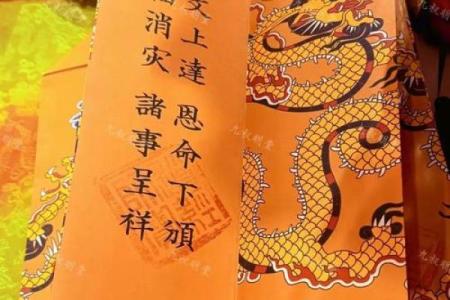 文上達 恩命下頒
消灾 諸事呈祥